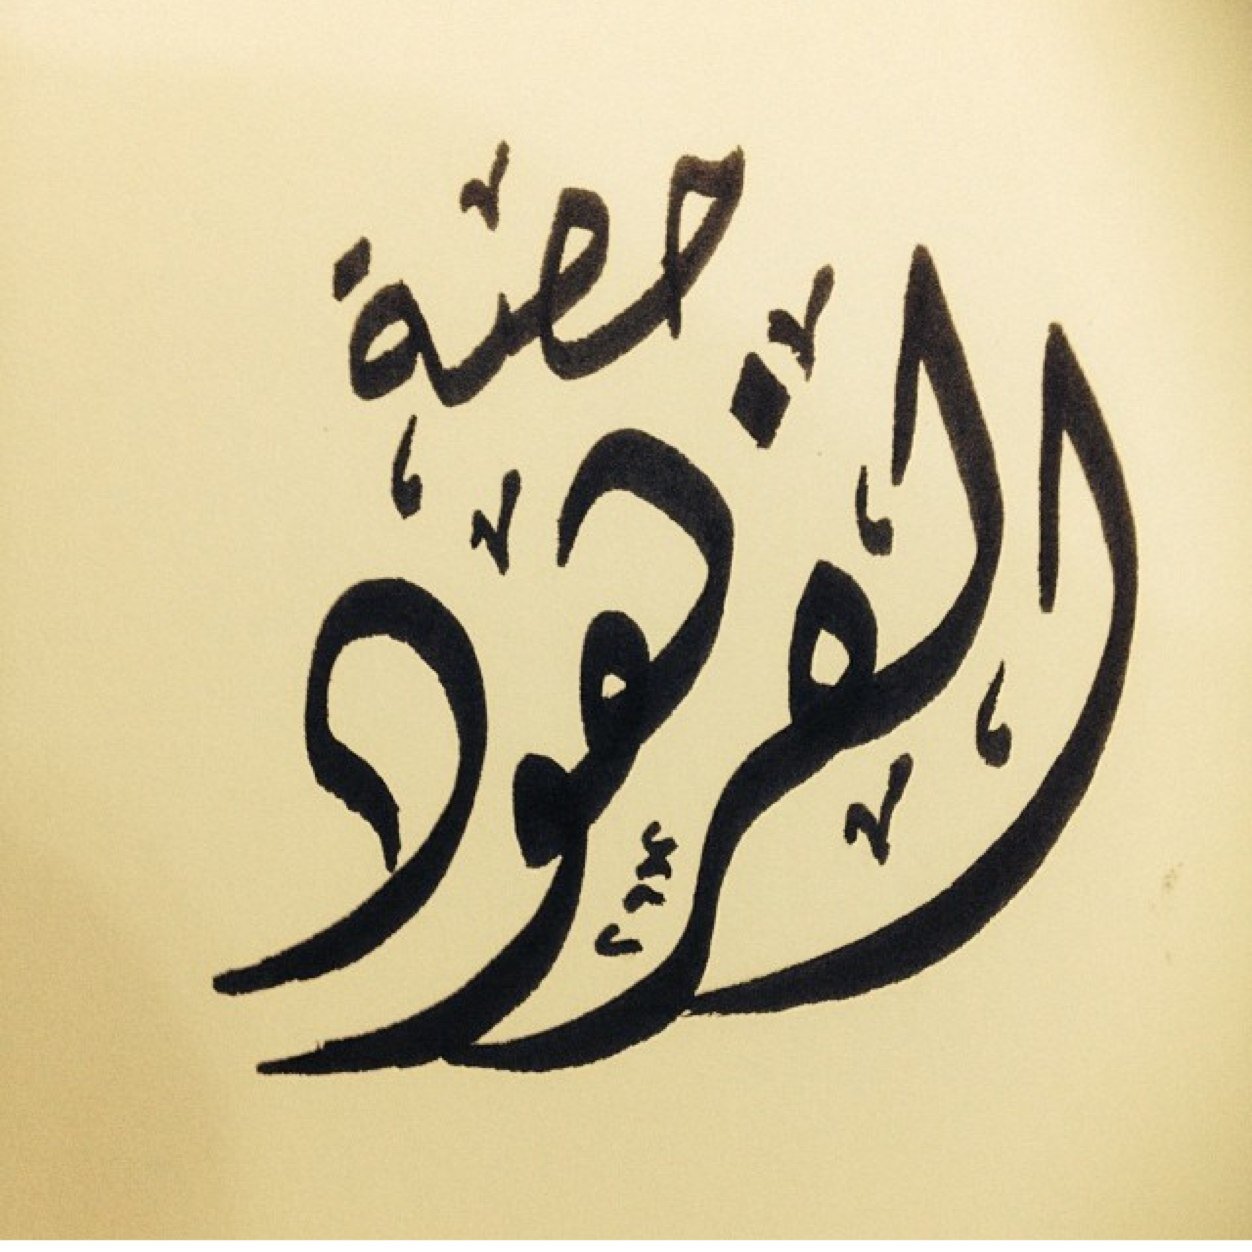 حصة
الفرهود